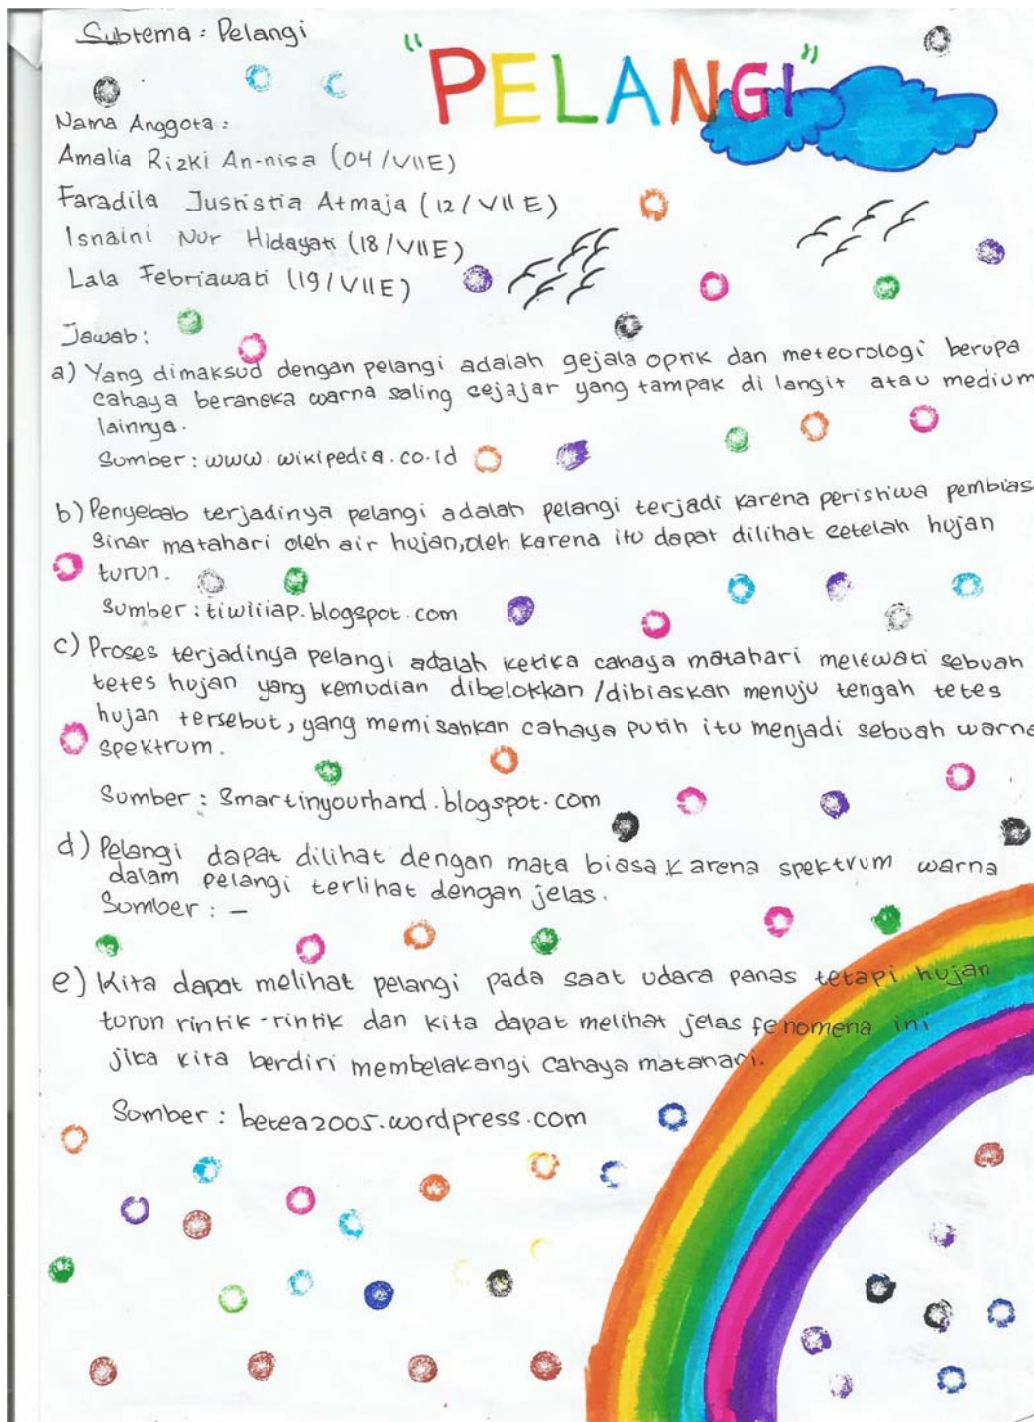 Subtema : Pelangi
"PELANGI"
Nama Anggota :
Amalia Rizki An-nisa (04/VIIE)
Faradila Justistia Atmaja (12/VIIE)
Isnaini Nur Hidayati (18/VIIE)
Lala Febriawati (19/VIIE)
Jawab :
a) Yang dimaksud dengan pelangi adalah gejala optik dan meteorologi berupa
cahaya beraneka warna saling sejajar yang tampak di langit atau medium
lainnya.
Sumber : www.wikipedia.co.id
b) Penyebab terjadinya pelangi adalah pelangi terjadi karena peristiwa pembias
sinar matahari oleh air hujan, oleh karena itu dapat dilihat setelah hujan
turun.
Sumber : tiwiiiap.blogspot.com
c) Proses terjadinya pelangi adalah ketika cahaya matahari melewati sebuah
tetes hujan yang kemudian dibelokkan/dibiaskan menuju tengah tetes
hujan tersebut, yang memisahkan cahaya putih itu menjadi sebuah warna
spektrum.
Sumber : Smartinyourhand.blogspot.com
d) Pelangi dapat dilihat dengan mata biasa karena spektrum warna
dalam pelangi terlihat dengan jelas.
Sumber : -
e) Kita dapat melihat pelangi pada saat udara panas tetapi hujan
turun rintik-rintik dan kita dapat melihat jelas fenomena ini
jika kita berdiri membelakangi cahaya matahari.
Sumber : betea2005.wordpress.com